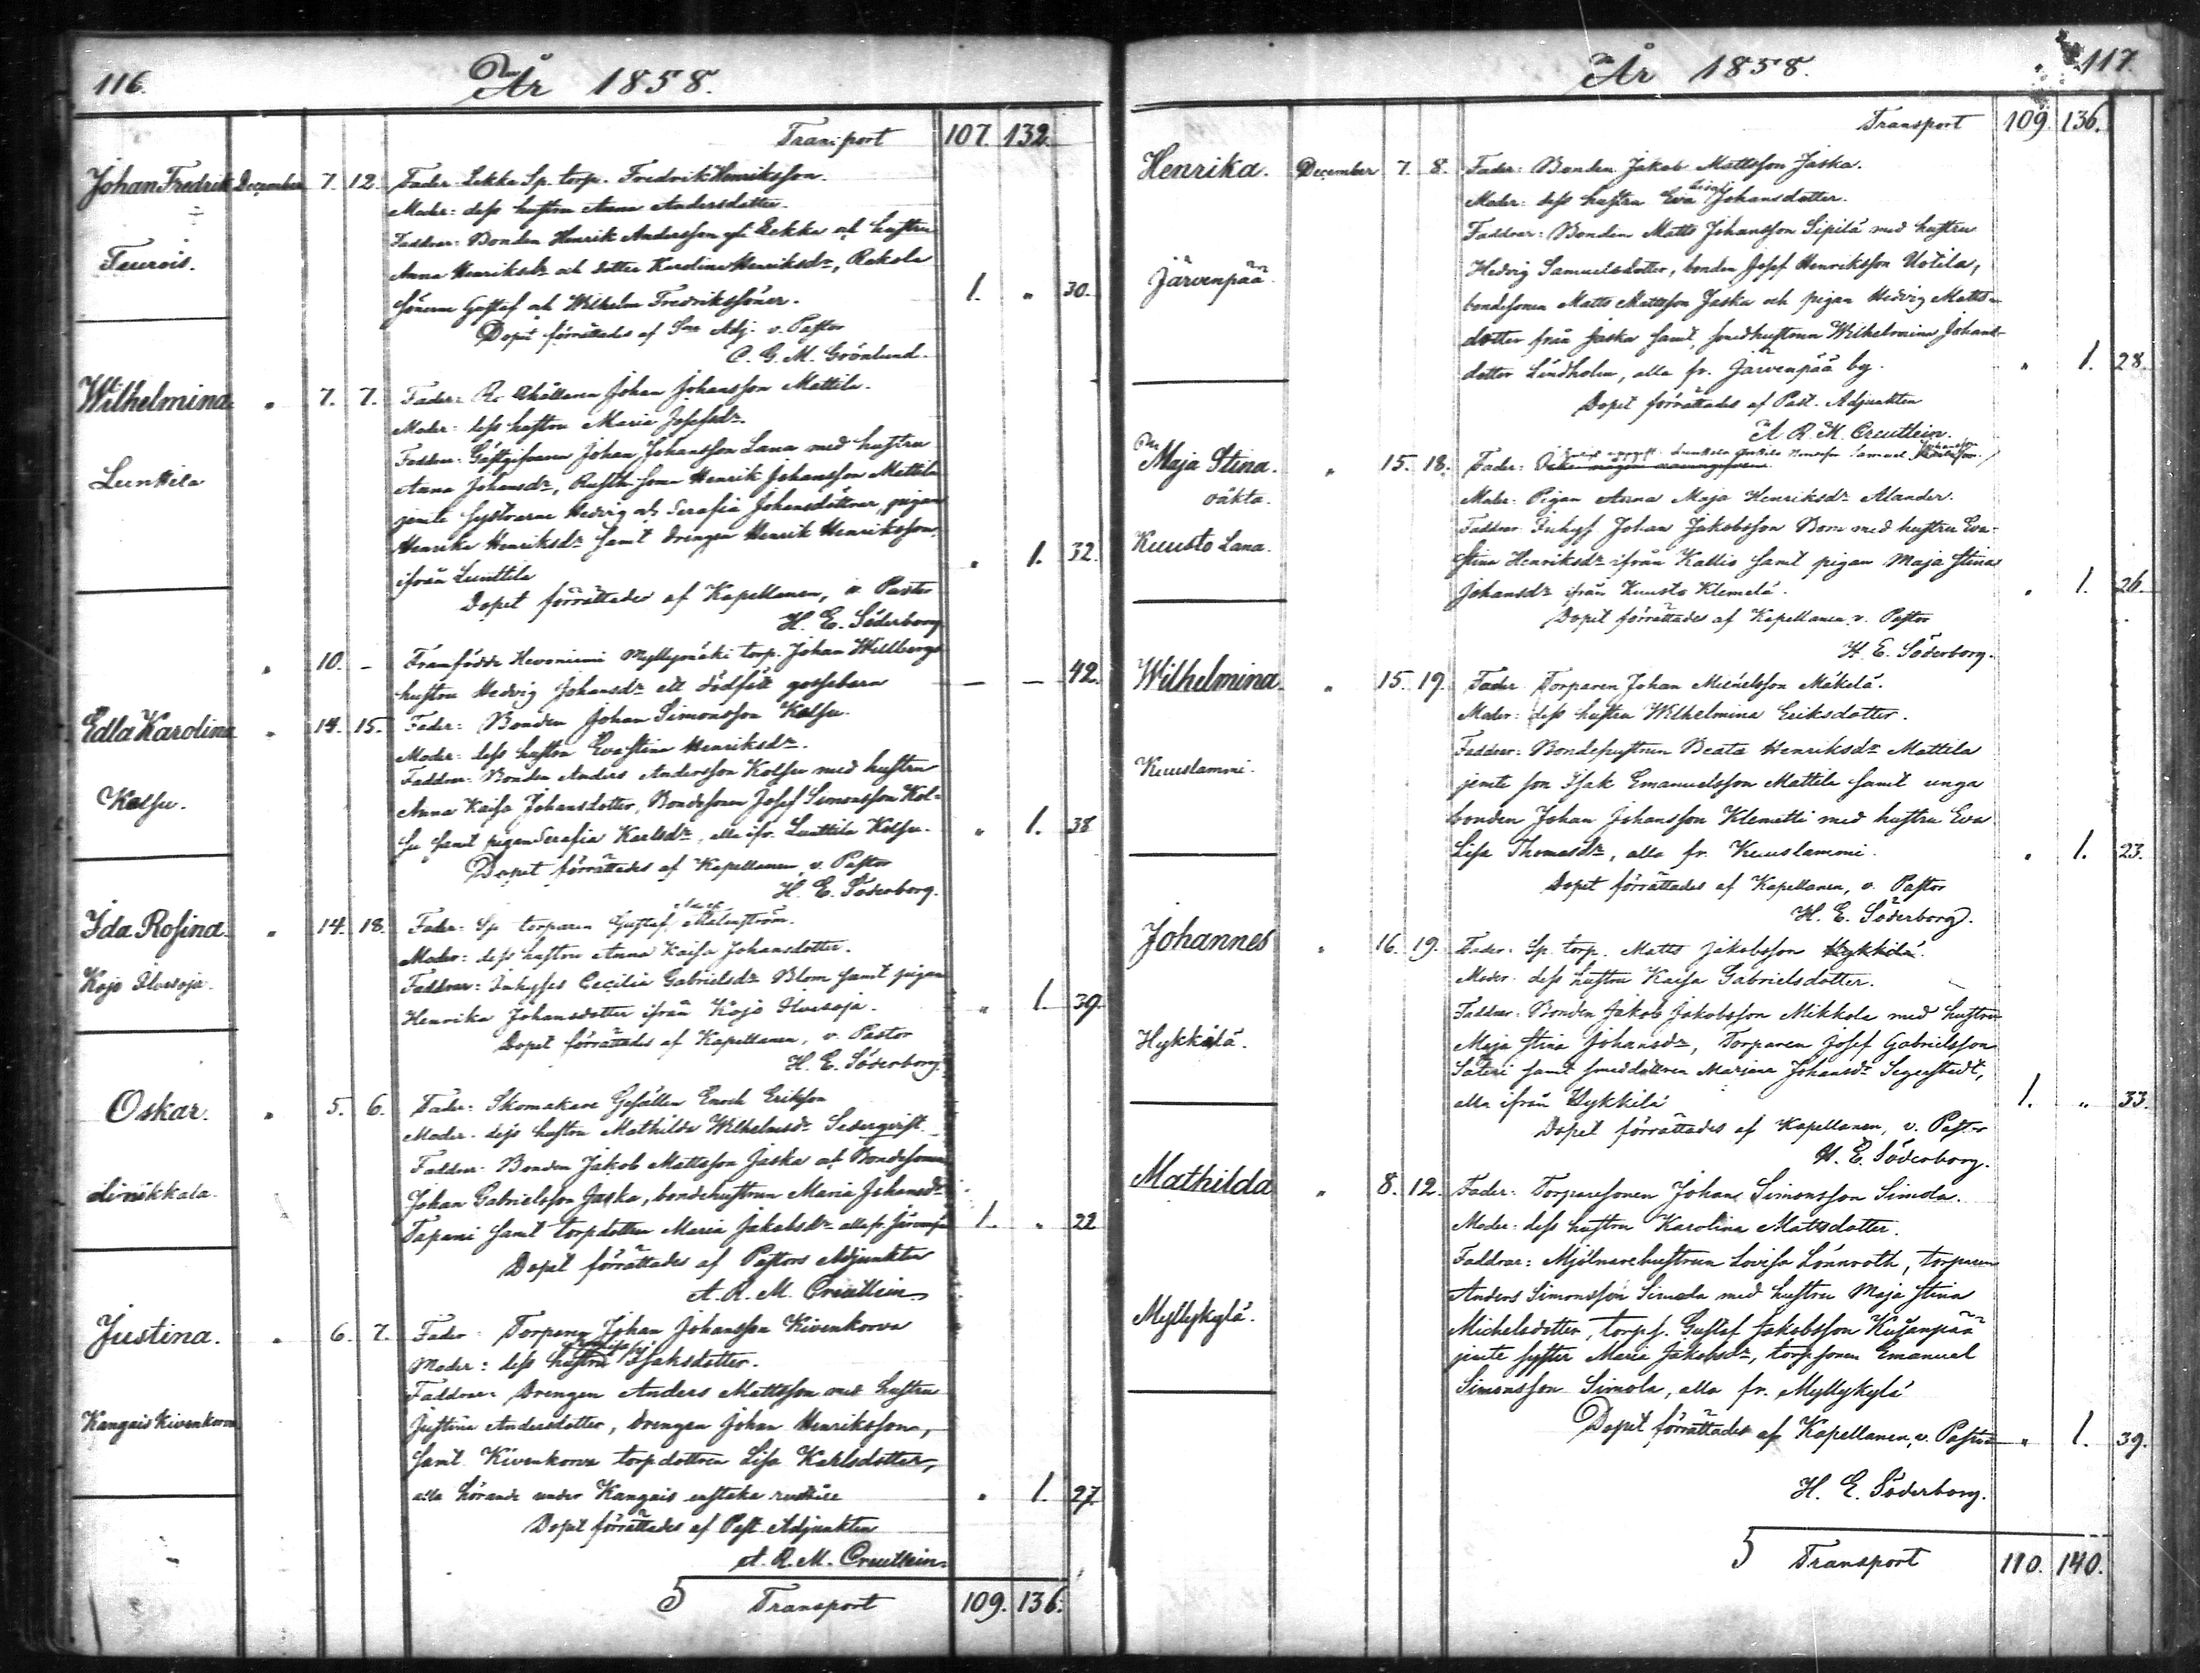 116. År 1858.
Transport 107. 132.
Johan Fredrik December 7. 12. Fader: Lekka Sp. torp. Fredrik Henriksson.
Moder: dess hustru Anna Andersdotter.
Faddrar: Bonden Henrik Andersson Lekka och hustru
Teurois.
Anna Henriksdr och dotter Karolina Henriksdr, Rekola
sönerne Gustaf och Wilhelm Fredrikssöner. 1. " 30.
Dopet förrättades af Adj. v. Pastor
C. G. M. Grönlund.
Wilhelmina " 7. 7. Fader: Johan Johansson Mattila.
Moder: dess hustru Maria Josefsdr.
Faddrar: Gästgifvaren Johan Johansson Lana med hustru
Lunttila
Anna Johansdr, Rusth. sonen Henrik Johansson Mattila
jemte systrarne Hedvig och Serafia Johansdöttrar, pigan
Henrika Henriksdr samt drengen Henrik Henriksson,
ifrån Lunttila " 1. 32.
Dopet förrättades af Kapellanen, v. Pastor
H. E. Söderborg.
" 10. – Framfödde Hevoniemi Myllymäki torp. Johan Willbergs
hustru Hedvig Johansdr ett dödfött gossebarn — — 42.
Edla Karolina " 14. 15. Fader: Bonden Johan Simonsson Kolsu.
Moder: dess hustru Eva Stina Henriksdr.
Faddrar: Bonden Anders Andersson Kolsu med hustru
Kolsu.
Anna Kaisa Johansdotter, Bondesonen Josef Simonsson Kol-
su samt pigan Serafia Karlsdr, alla ifr. Lunttila Kolsu. " 1. 38
Dopet förrättades af Kapellanen, v. Pastor
H. E. Söderborg.
Ida Rosina. " 14. 18. Fader: Sp. torparen Gustaf Malmström.
Moder: dess hustru Anna Kaisa Johansdotter.
Kojo
Faddrar: Inhyses Cecilia Gabrielsdr Blom samt pigan
Henrika Johansdotter ifrån Kojo " 1. 39.
Dopet förrättades af Kapellanen, v. Pastor
H. E. Söderborg.
Oskar. " 5. 6. Fader: Skomakare Gesällen Enoch Eriksson
Moder: dess hustru Mathilda Wilhelmsdr
Faddrar: Bonden Jakob Mattsson Jaska och Bondesonen
Linikkala.
Johan Gabrielsson Jaska, bondehustrun Maria Johansdr
Tapani samt torpdottern Maria Jakobsdr alla fr. Järvenpää 1. " 22
Dopet förrättades af Pastors Adjunkten
A. R. M. Creutlein
Justina. " 6. 7. Fader: Torparen Johan Johansson Kivenkorva
Moder: dess hustru Isaksdotter.
Faddrar: Drengen Anders Mattsson med hustru
Kangais Kivenkorva
Justina Andersdotter, drengen Johan Henriksson,
samt Kivenkorva torpdottren Lisa Karlsdotter,
alla hörande under Kangais enstaka " 1. 27.
Dopet förrättades af Past. Adjunkten
A. R. M. Creutlein.
5 Transport 109. 136.
År 1858. 117.
Transport 109. 136.
Henrika. December 7. 8. Fader: Bonden Jakob Mattsson Jaska.
Moder: dess hustru Eva Lisa Johansdotter.
Faddrar: Bonden Matts Johansson Sipilä med hustru
Järvenpää.
Hedvig Samuelsdotter, bonden Josef Henriksson Uotila,
bondesonen Matts Mattsson Jaska och pigan Hedvig Matts-
dotter från Jaska samt smedhustrun Wilhelmina Johans-
dotter Lindholm, alla fr. Järvenpää by. " 1. 28.
Dopet förrättades af Past. Adjunkten
A. R. M. Creutlein.
Maja Stina. " 15. 18. Fader: Samuel Johansson
oäkta.
Moder: Pigan Anna Maja Henriksdr Alander.
Faddrar: Inhys. Johan Jakobsson Bom med hustru Eva
Kuusto Lana.
Stina Henriksdr ifrån Kallio samt pigan Maja Stina
Johansdr ifrån Kuusto Klemelä. " 1. 26.
Dopet förrättades af Kapellanen v. Pastor
H. E. Söderborg.
Wilhelmina. " 15. 19. Fader: Torparen Johan Michelsson Mäkelä.
Moder: dess hustru Wilhelmina Eriksdotter.
Faddrar: Bondehustrun Beata Henriksdr Mattila
Kuuslammi.
jemte son Isak Emanuelsson Mattila samt unga
bonden Johan Johansson Klemetti med hustru Eva
Lisa Thomasdr, alla fr. Kuuslammi. " 1. 23.
Dopet förrättades af Kapellanen, v. Pastor
H. E. Söderborg.
Johannes " 16. 19. Fader: Sp. torp. Matts Jakobsson Hykkilä.
Moder: dess hustru Kaisa Gabrielsdotter.
Faddrar: Bonden Jakob Jakobsson Mikkola med hustru
Hykkilä.
Maja Stina Johansdr, Torparen Josef Gabrielsson
Säteri samt smeddottren Mariana Johansdr Segerstedt,
alla ifrån Hykkilä 1. " 33.
Dopet förrättades af Kapellanen, v. Pastor
H. E. Söderborg.
Mathilda " 8. 12. Fader: Torparesonen Johan Simonsson Simola.
Moder: dess hustru Karolina Mattsdotter.
Faddrar: Mjölnarehustrun Lovisa Lönnroth, torparen
Anders Simonsson Simola med hustru Maja Stina
Myllykylä.
Michelsdotter, torps. Gustaf Jakobsson Kujanpää
jemte syster Maria Jakobsdr, torpsonen Emanuel
Simonsson Simola, alla fr. Myllykylä
Dopet förrättades af Kapellanen, v. Pastor " 1. 39.
H. E. Söderborg.
5 Transport 110. 140.